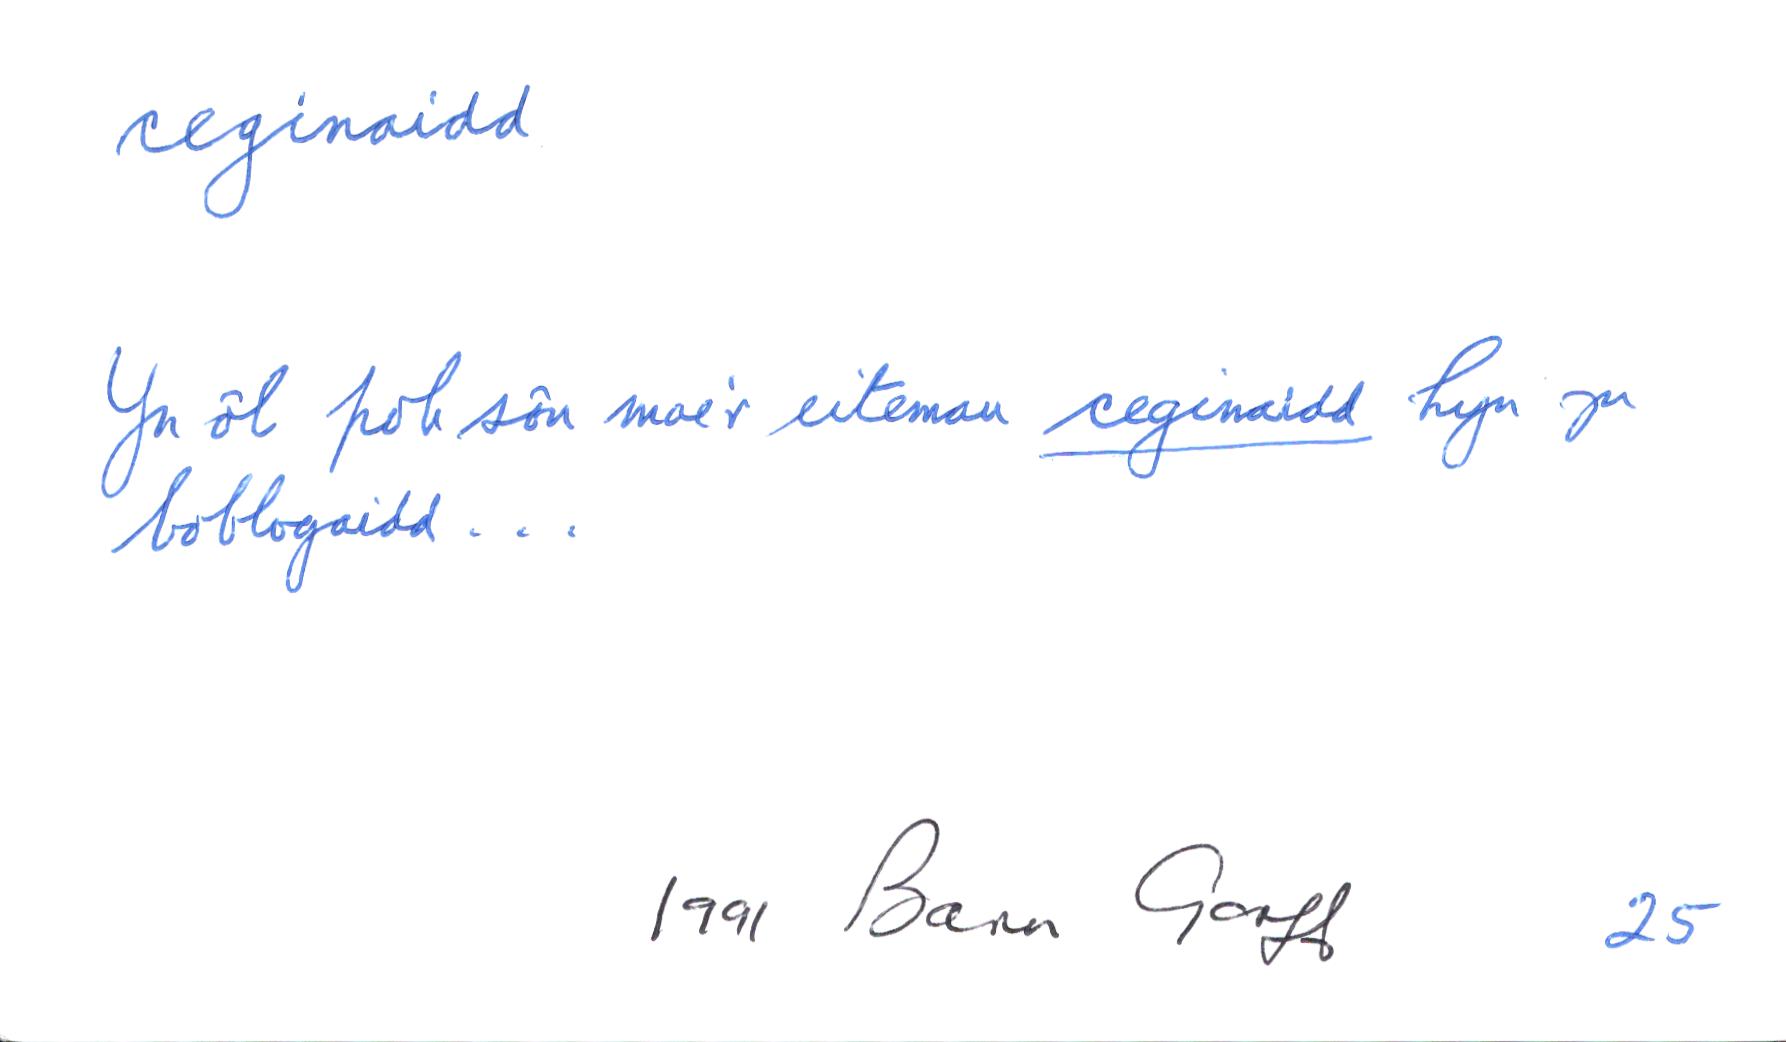 ceginaidd
Yn ôl pob sôn mae'r eitemau ceginaidd hyn yn
boblogaidd...
1991 Barn Gorff 25